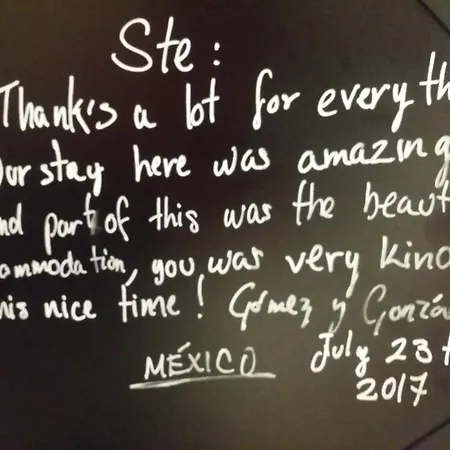 Ste:
Thank's a lot for everyth
Our stay here was amazing
nd part of this was the beaut
ammodation, you was very kind
his nice time! Gómez y Gonzá
MÉXICO July 23
2017